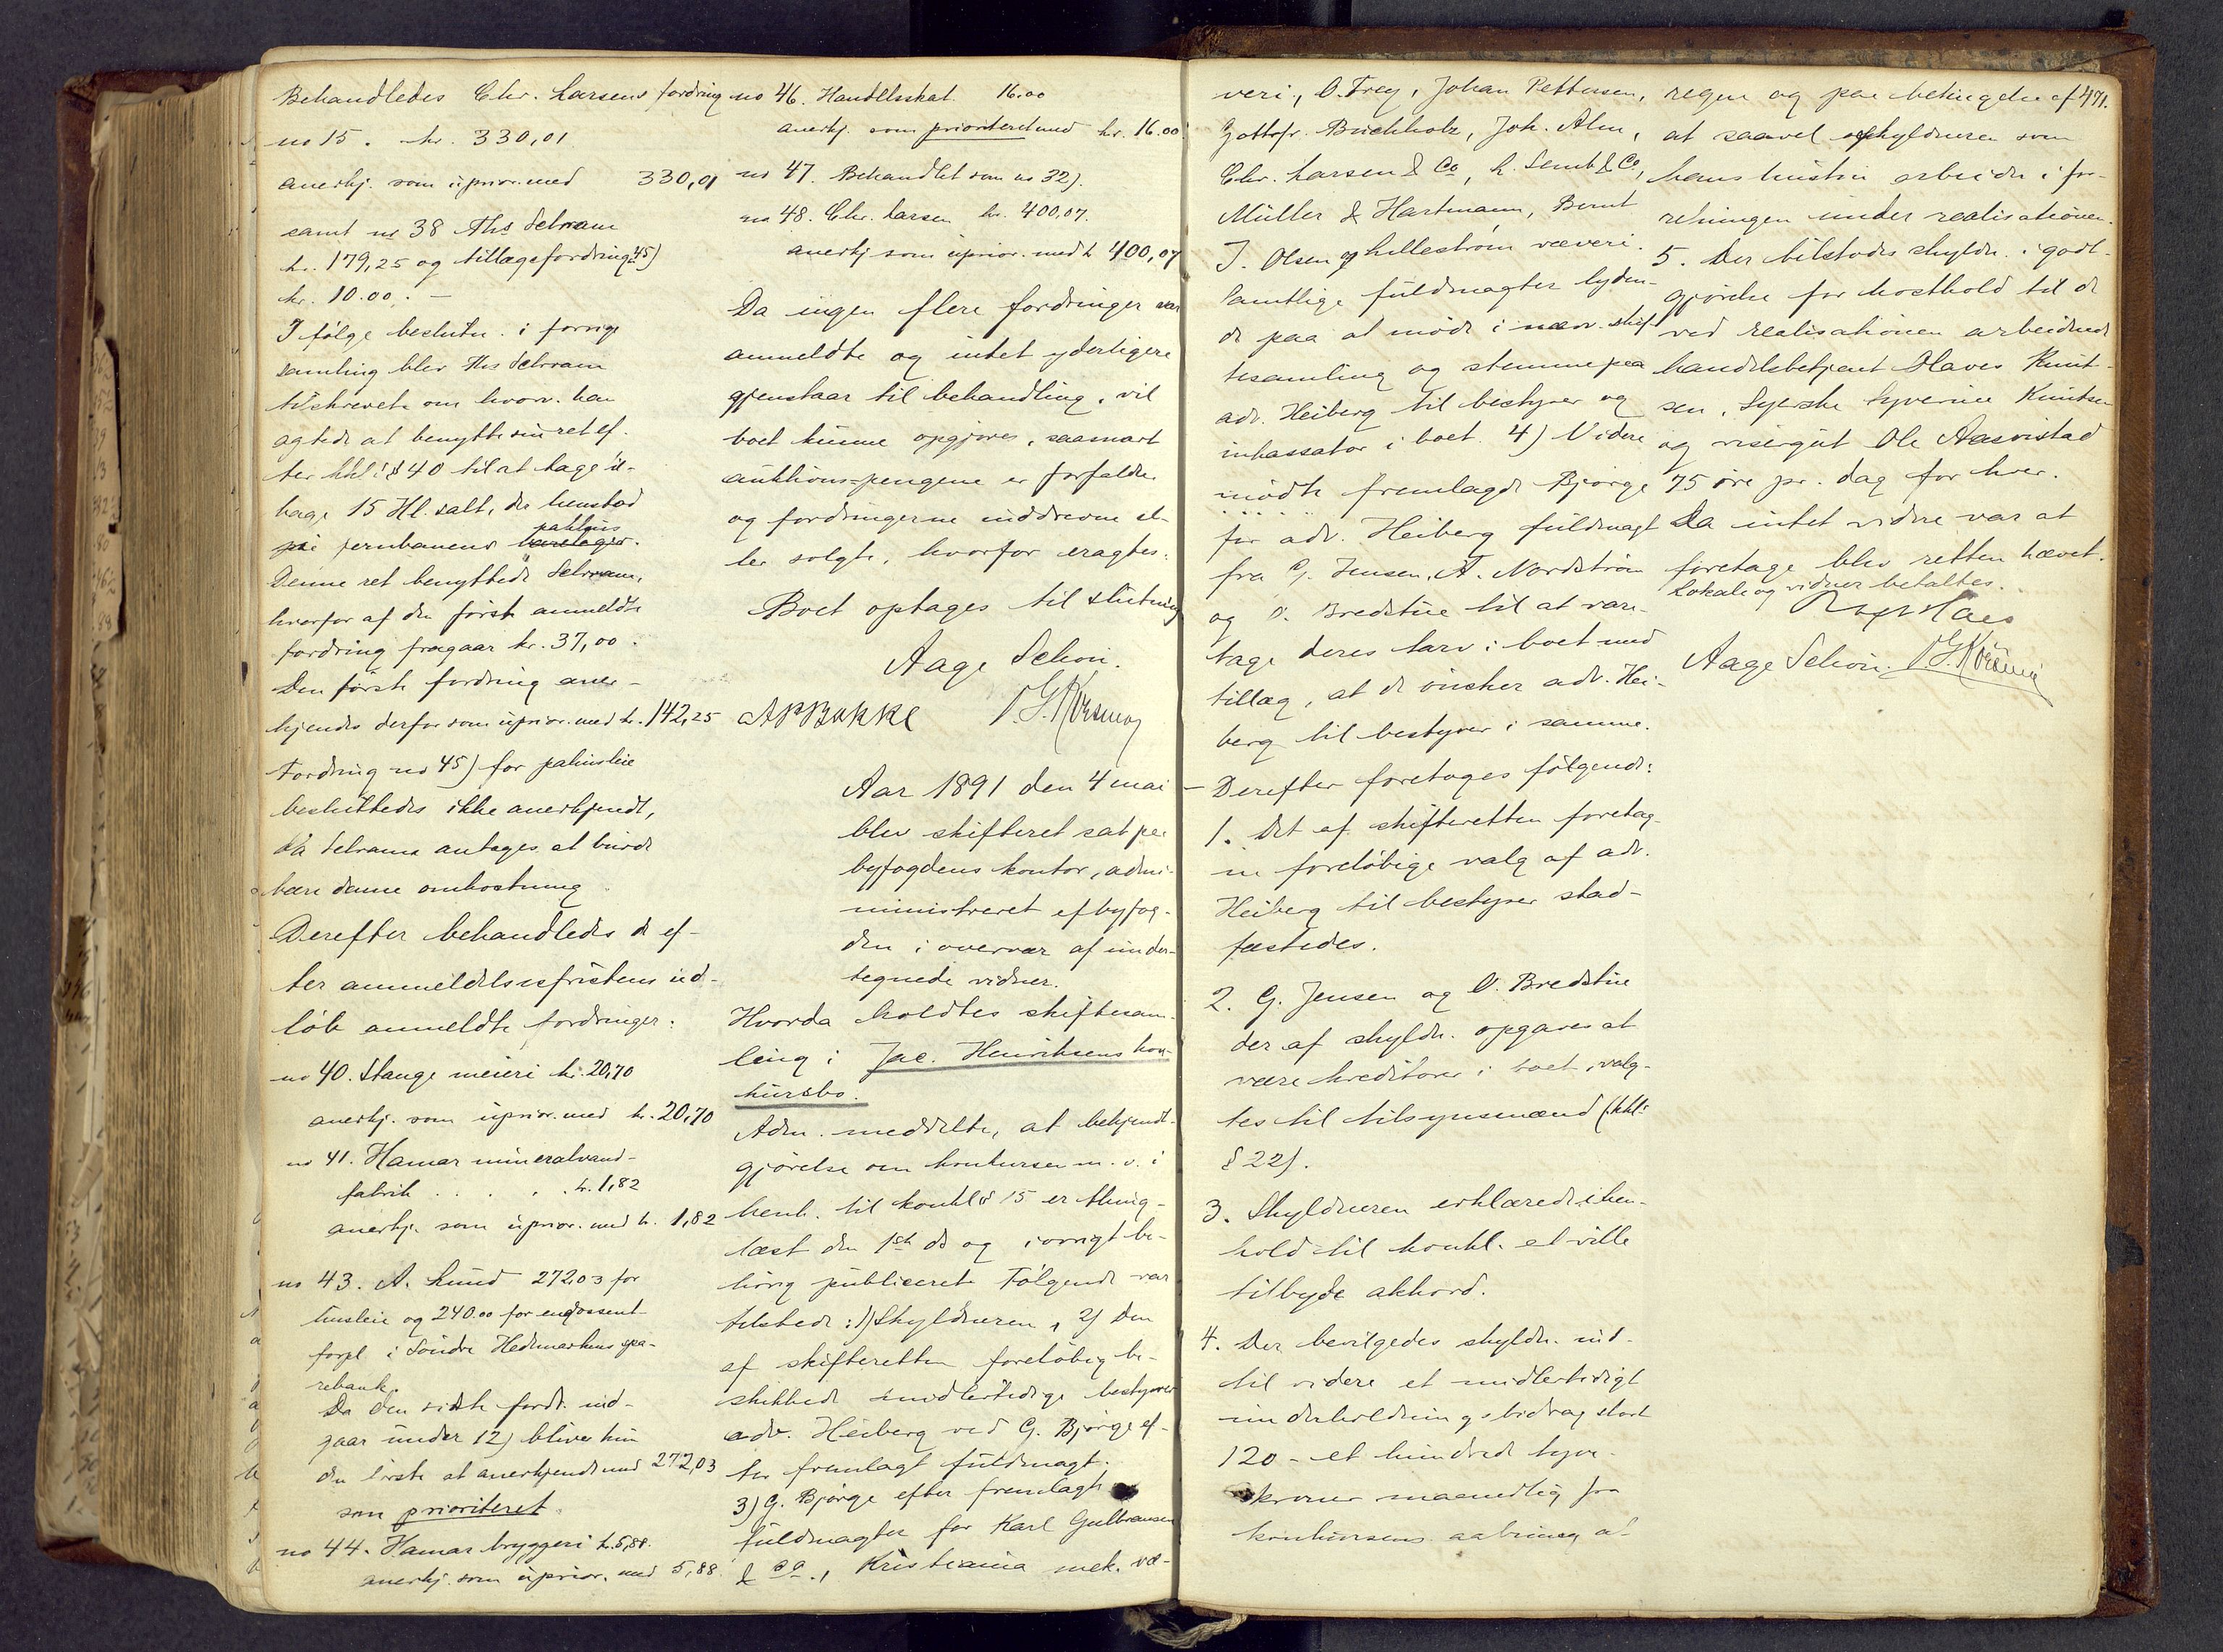 Behandledes Chr. Larsens fordring
no 15. kr. 330,01
anerkj. som uprior. med 330,01
samt no 38 Ths Schram
kr. 179,25 og tillægsfordring 45)
kr. 10.00. —
I følge beslutn. i forrige
samling blev Ths Schram
tilskrevet om hvorv. han
agtede at benytte sin ret ef-
ter kkl's § 40 til at tage til-
bage 15 Hl. salt, der henstod
i jernbanens pakhus.
Denne ret benyttede Schram,
hvorfor af den først anmeldte
fordring fragaar kr. 37,00.
Den første fordring aner-
kjendes derfor som uprior. med kr. 142,25
Fordring no 45) for pakhusleie
besluttedes ikke anerkjendt,
da Schram antages at burde
bære denne omkostning.
Derefter behandledes de ef-
ter anmeldelsesfristens ud-
løb anmeldte fordringer:
no 40. Stange meieri kr. 20,70
anerkj. som uprior. med kr. 20,70
no 41. Hamar mineralvand-
fabrik . . . . kr. 1,82
anerkj. som uprior. med kr. 1,82
no 43. A. Lund 272,03 for
husleie og 240.00 for endossent-
forpl. i Søndre Hedemarkens spa-
rebank.
Da den sidste fordr. ind-
gaar under 12) bliver kun
den første at anerkjende med 272,03
som prioriteret
no 44. Hamar bryggeri kr. 5,88.
anerkj. som uprior. med 5,88.
no 46. Handelsskat 16.00
anerkj. som prioriteret med kr. 16.00
no 47. Behandlet som no 32).
no 48. Chr. Larsen kr. 400,07.
anerkj som uprior. med kr 400,07
Da ingen flere fordringer var
anmeldte og intet yderligere
gjenstaar til behandling, vil
boet kunne opgjøres, saasnart
auktions-pengene er forfaldne
og fordringerne inddrevne el-
ler solgte, hvorfor eragtes:
Boet optages til slutning
Aage Schou.
AP Bakke
Aar 1891 den 4 mai
blev skifteret sat paa
byfogdens kontor, admi-
ministreret af byfog-
den i overvær af under-
tegnede vidner.
Hvorda holdtes skiftesam-
ling i Jac. Henriksens kon-
kursbo.
Adm. meddelte, at bekjendt-
gjørelse om konkursen m. v. i
henh. til konkl § 15 er thing-
læst den 1ste ds og iøvrigt be-
hørig publiceret. Følgende var
tilstede: 1) Skyldneren, 2) Den
af skifteretten foreløbig be-
skikkede midlertidige bestyrer
adv. Heiberg ved G. Bjørge ef-
ter fremlagt fuldmagt.
3) G. Bjørge efter fremlagte
fuldmagter for Karl Gulbransen
& Co., Kristiania mek. væ-
veri, O. Frey, Johan Pettersen,
Gottfr. Buchholz, Joh. Alm,
Chr. Larsen & Co, L. Semb & Co,
Müller & Hartmann, Bernt
J. Olsen og Lillestrøm væveri.
Samtlige fuldmagter lyden-
de paa at møde i nærv. skif-
tesamling og stemme paa
adv. Heiberg til bestyrer og
inkassator i boet. 4) Videre
mødte fremlagde Bjørge
for adv. Heiberg fuldmagt
fra G. Jensen, A. Nordstrøm
og O. Bredstue til at vare-
tage deres tarv i boet med
tillæg, at de ønsker adv. Hei-
berg til bestyrer i samme.
— Derefter foretoges følgende:
1. Det af skifteretten foretag-
ne foreløbige valg af adv.
Heiberg til bestyrer stad-
fæstedes.
2. G. Jensen og O. Bredstue
der af skyldn. opgaves at
være kreditorer i boet, valg-
tes til tilsynsmænd (kkl:
§ 22).
3. Skyldneren erklærede i hen-
hold til konkl. at ville
tilbyde akkord.
4. Der bevilgedes skyldn. ind-
til videre et midlertidigt
underholdningsbidrag stort
120 - et hundrede tyve -
kroner maanedlig fra
konkursens aabning at
471.
regne og paa betingelse af
at saavel skyldneren som
hans hustru arbeide i for-
retningen under realisationen.
5. Der tilstodes skyldn. i godt-
gjørelse for kosthold til de
ved realisationen arbeidende
handelsbetjent Olaves Knut-
sen, Syerske Syverine Knutsen
og visergut Ole Aasvistad
75 øre pr. dag for hver.
Da intet videre var at
foretage blev retten hævet.
Lokale og vidner betaltes.
Aage Schou.